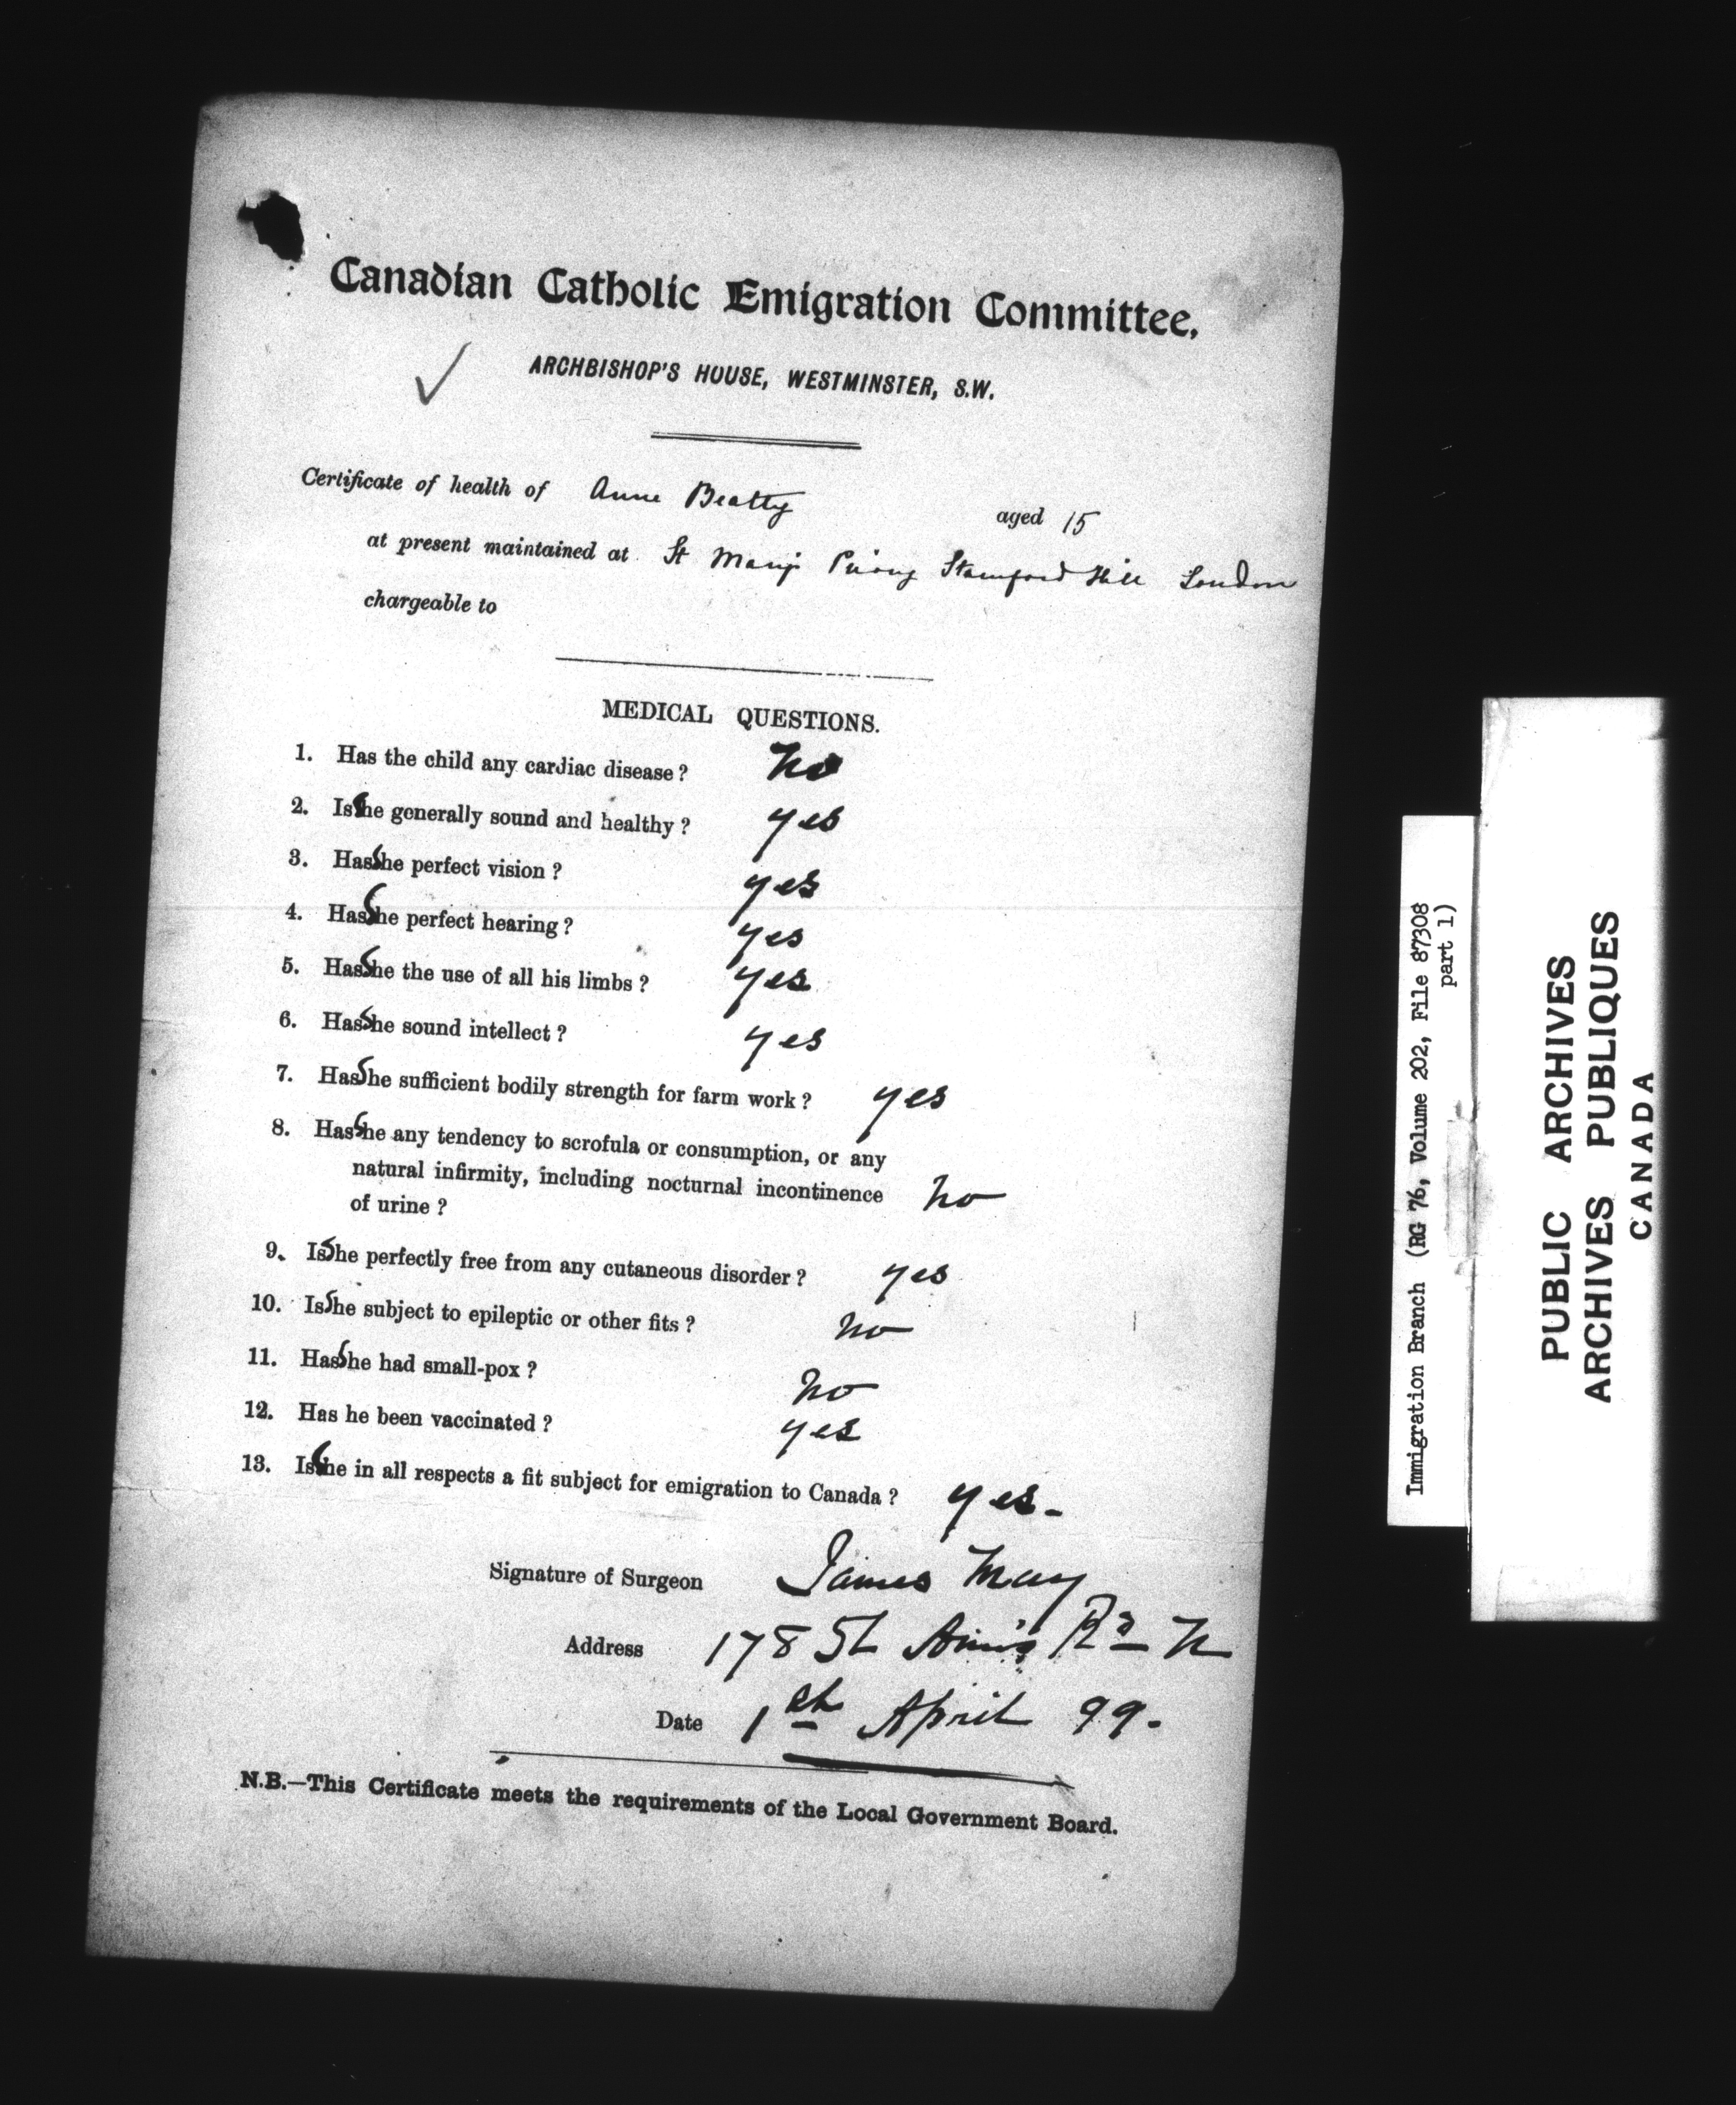 Canadian Catholic Emigration Committee,
ARCHBISHOP'S HOUSE, WESTMINSTER, S.W.
Certificate of health of Anne Beatty aged 15
at present maintained at St Mary's Priory Stamford Hill London
chargeable to
MEDICAL QUESTIONS.
1. Has the child any cardiac disease? No
2. Is She generally sound and healthy? yes
3. Has She perfect vision? yes
4. Has She perfect hearing? yes
5. Has She the use of all his limbs? yes
6. Has She sound intellect? yes
7. Has She sufficient bodily strength for farm work? yes
8. Has She any tendency to scrofula or consumption, or any
natural infirmity, including nocturnal incontinence
of urine? no
9. Is She perfectly free from any cutaneous disorder? yes
10. Is She subject to epileptic or other fits? no
11. Has She had small-pox? no
12. Has he been vaccinated? yes
13. Is She in all respects a fit subject for emigration to Canada? yes-
Signature of Surgeon James May
Address 178 St Ann's Rd N
Date 1st April 99.
N.B.—This Certificate meets the requirements of the Local Government Board.
Immigration Branch (RG 76, Volume 202, File 87308
part 1)
PUBLIC ARCHIVES
ARCHIVES PUBLIQUES
CANADA